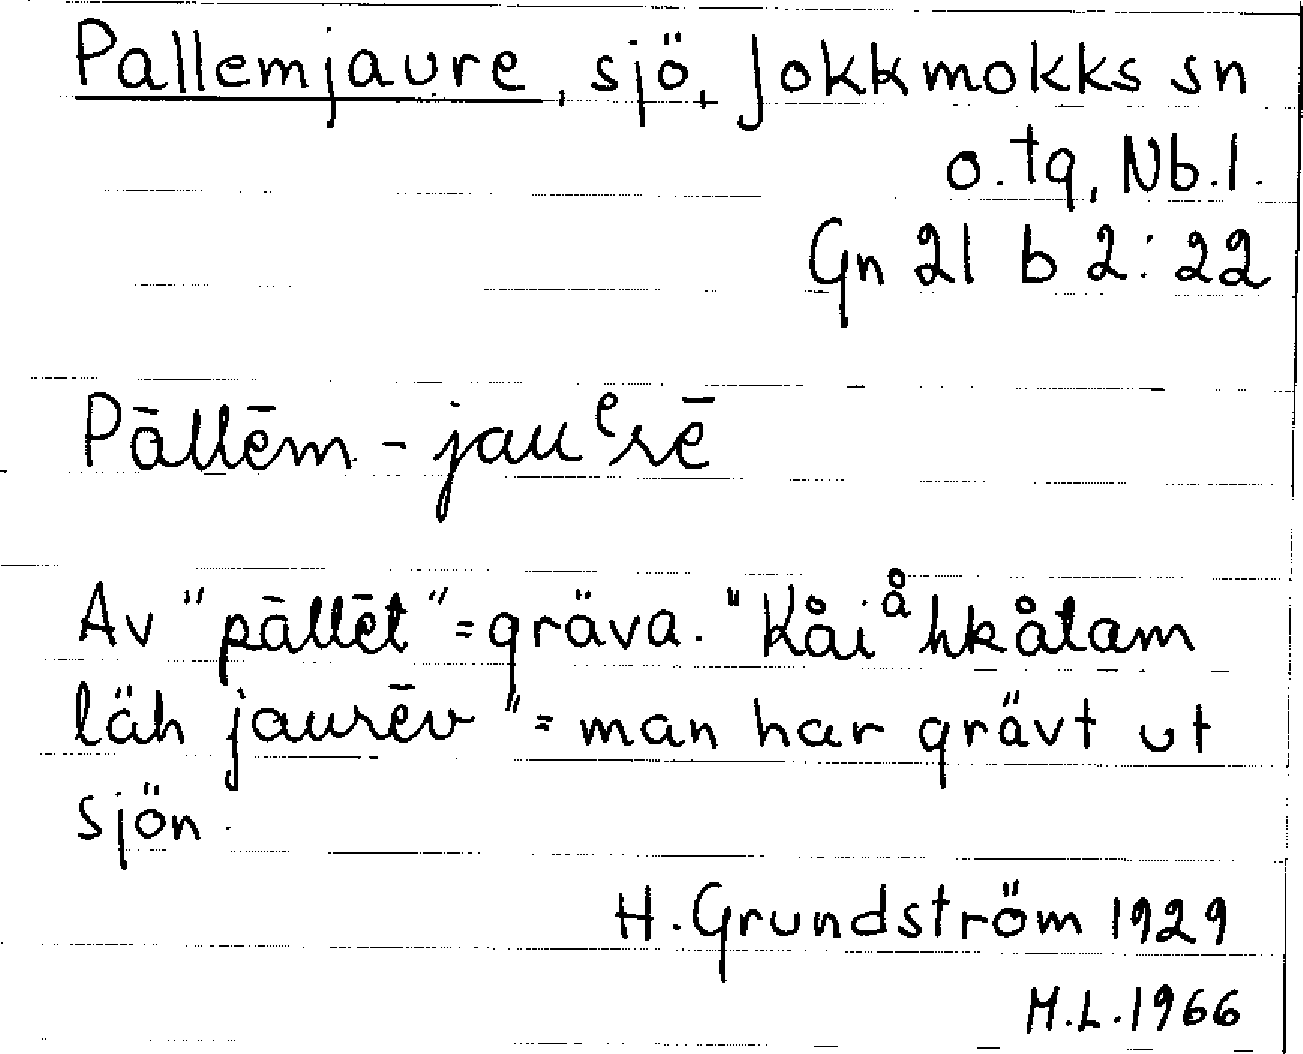 Pallemjaure, sjö, Jokkmokks sn
o. tg, Nb. l.
Gn 21 b 2:22
Pāllēm-jauᵉrē
Av "pāllēt" = gräva. "Kåiåhkåtam
läh jaurēv" = man har grävt ut
sjön.
H. Grundström 1929
M.L. 1966